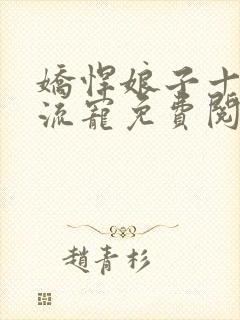 嬌悍娘子十
流寵免費閱
趙青杉